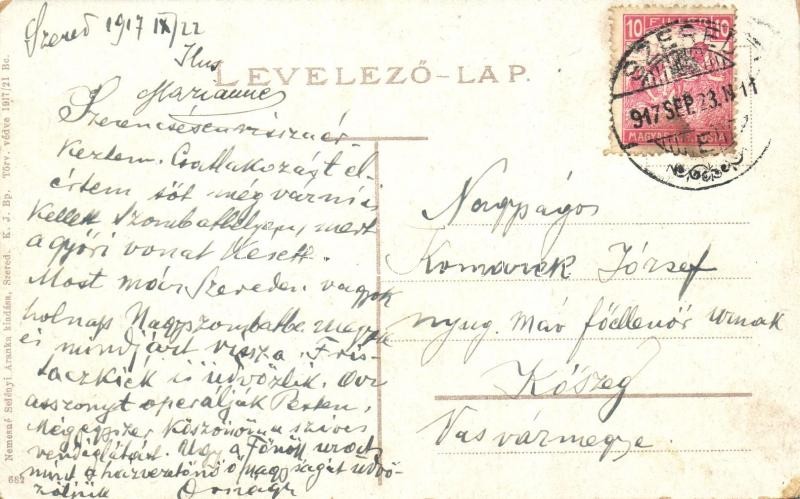 Szered 1917 IX/22
Ilus
Marianne
LEVELEZŐ-LAP.
Szerencsésen visszaér-
keztem. Csatlakozást el-
értem sőt még várni is
kellett Szombathelyen, mert
a győri vonat késett.
Most már Szereden vagyok
holnap Nagyszombatba megyek
és mindjárt vissza.
is üdvözlik.
asszonyt operálják Pesten.
Mégegyszer köszönöm a szíves
vendéglátást. Úgy a Főnök urat
mint a házvezetőnő őnagyságát üdvö-
zöljük
10 FILLÉR 10
MAGYAR POSTA
SZERED
917 SEP. 23. N 11
Nagyságos
Komarek József
nyug. Máv főellenőr urnak
Kőszeg
Vasvármegye
Nemesné Sefényi Aranka kiadása, Szered. K. J. Bp. Törv. védve 1917/21 Bc.
682